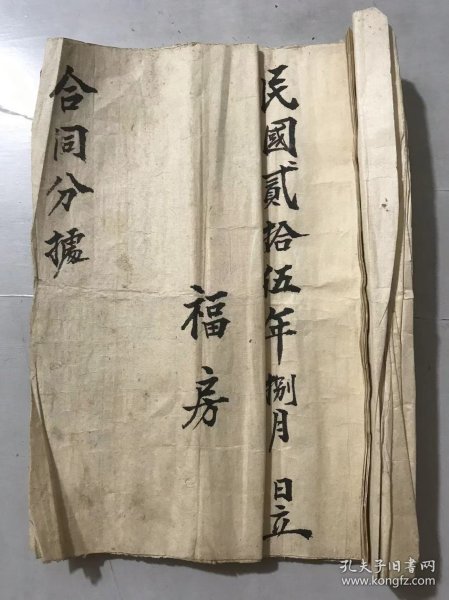 民國貳拾伍年捌月 日立
福房
合同分據
孔夫子旧书网
www.kongfz.com